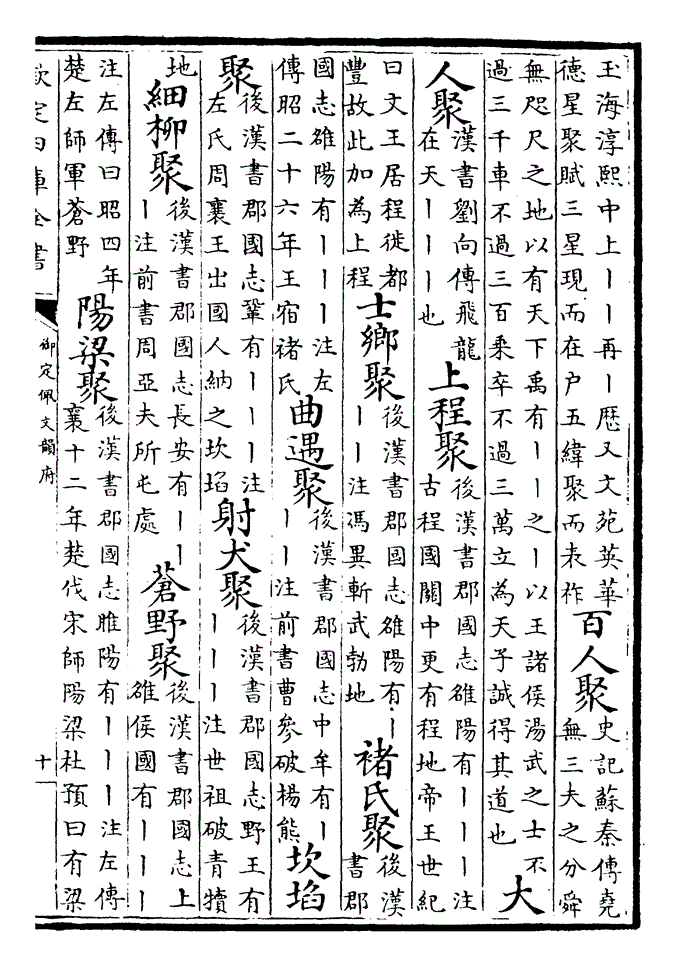 玉海淳熙中上丨丨再丨歴又文苑英華
德星聚賦三星現而在户五緯聚而表祚
百人聚
史記蘇秦傳堯
無三夫之分舜
無咫尺之地以有天下禹有丨丨之丨以王諸侯湯武之士不
過三千車不過三百乗卒不過三萬立為天子誠得其道也
大
人聚
漢書劉向傳飛龍
在天丨丨丨也
上程聚
後漢書郡國志雒陽有丨丨丨注
古程國關中更有程地帝王世紀
曰文王居程徙都
豐故此加為上程
士鄉聚
後漢書郡國志雒陽有丨
丨丨注馮異斬武勃地
褚氏聚
後漢
書郡
國志雒陽有丨丨丨注左
傳昭二十六年王宿褚氏
曲遇聚
後漢書郡國志中牟有丨
丨丨注前書曹參破楊熊
坎埳
聚
後漢書郡國志鞏有丨丨丨注
左氏周襄王出國人納之坎埳
射犬聚
後漢書郡國志野王有
丨丨丨注世祖破青犢
地
細柳聚
後漢書郡國志長安有丨丨
丨注前書周亞夫所屯處
蒼野聚
後漢書郡國志上
雒侯國有丨丨丨
注左傳曰昭四年
楚左師軍蒼野
陽梁聚
後漢書郡國志睢陽有丨丨丨注左傳
襄十二年楚伐宋師陽梁杜預曰有梁
欽定四庫全書
御定佩文韻府
十